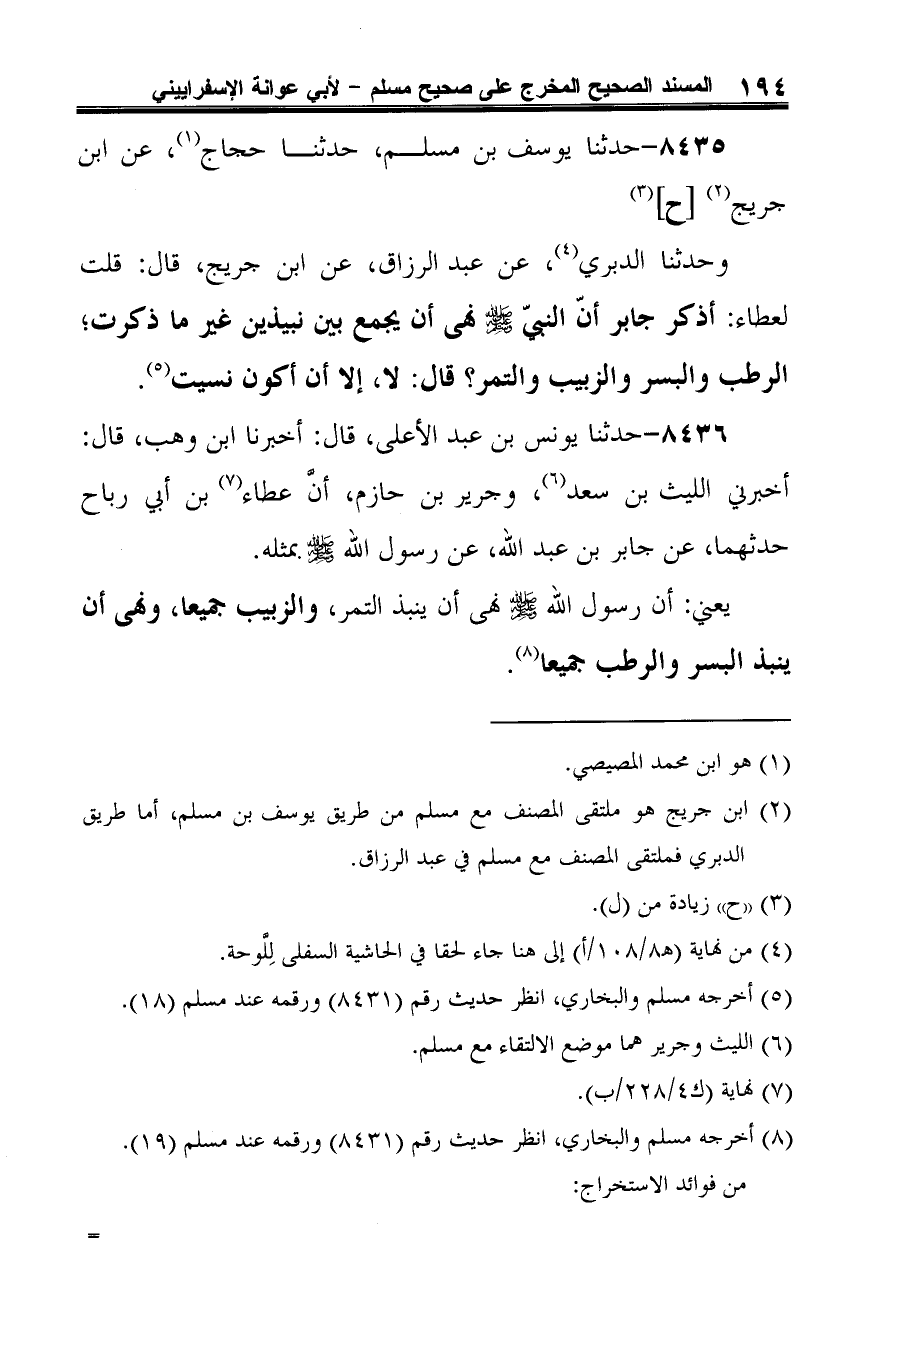 ١٩٤ المسند الصحيح المخرج على صحيح مسلم - لأبي عوانة الإسفراييني
٨٤٣٥-حدثنا يوسف بن مسلم، حدثنا حجاج(١)، عن ابن
جريج(٢) [ح](٣)
وحدثنا الدبري(٤)، عن عبد الرزاق، عن ابن جريج، قال: قلت
لعطاء: أذكر جابر أنّ النبيّ ﷺ نهى أن يجمع بين نبيذين غير ما ذكرت؛
الرطب والبسر والزبيب والتمر؟ قال: لا، إلا أن أكون نسيت(٥).
٨٤٣٦-حدثنا يونس بن عبد الأعلى، قال: أخبرنا ابن وهب، قال:
أخبرني الليث بن سعد(٦)، وجرير بن حازم، أنَّ عطاء(٧) بن أبي رباح
حدثهما، عن جابر بن عبد الله، عن رسول الله ﷺ بمثله.
يعني: أن رسول الله ﷺ نهى أن ينبذ التمر، والزبيب جميعا، ونهى أن
ينبذ البسر والرطب جميعا(٨).
(١) هو ابن محمد المصيصي.
(٢) ابن جريج هو ملتقى المصنف مع مسلم من طريق يوسف بن مسلم، أما طريق
الدبري فملتقى المصنف مع مسلم في عبد الرزاق.
(٣) ((ح)) زيادة من (ل).
(٤) من نهاية (هـ٨/١٠٨/أ) إلى هنا جاء لحقا في الحاشية السفلى لِلَّوحة.
(٥) أخرجه مسلم والبخاري، انظر حديث رقم (٨٤٣١) ورقمه عند مسلم (١٨).
(٦) الليث وجرير هما موضع الالتقاء مع مسلم.
(٧) نهاية (ك٤/٢٢٨/ب).
(٨) أخرجه مسلم والبخاري، انظر حديث رقم (٨٤٣١) ورقمه عند مسلم (١٩).
من فوائد الاستخراج:
=